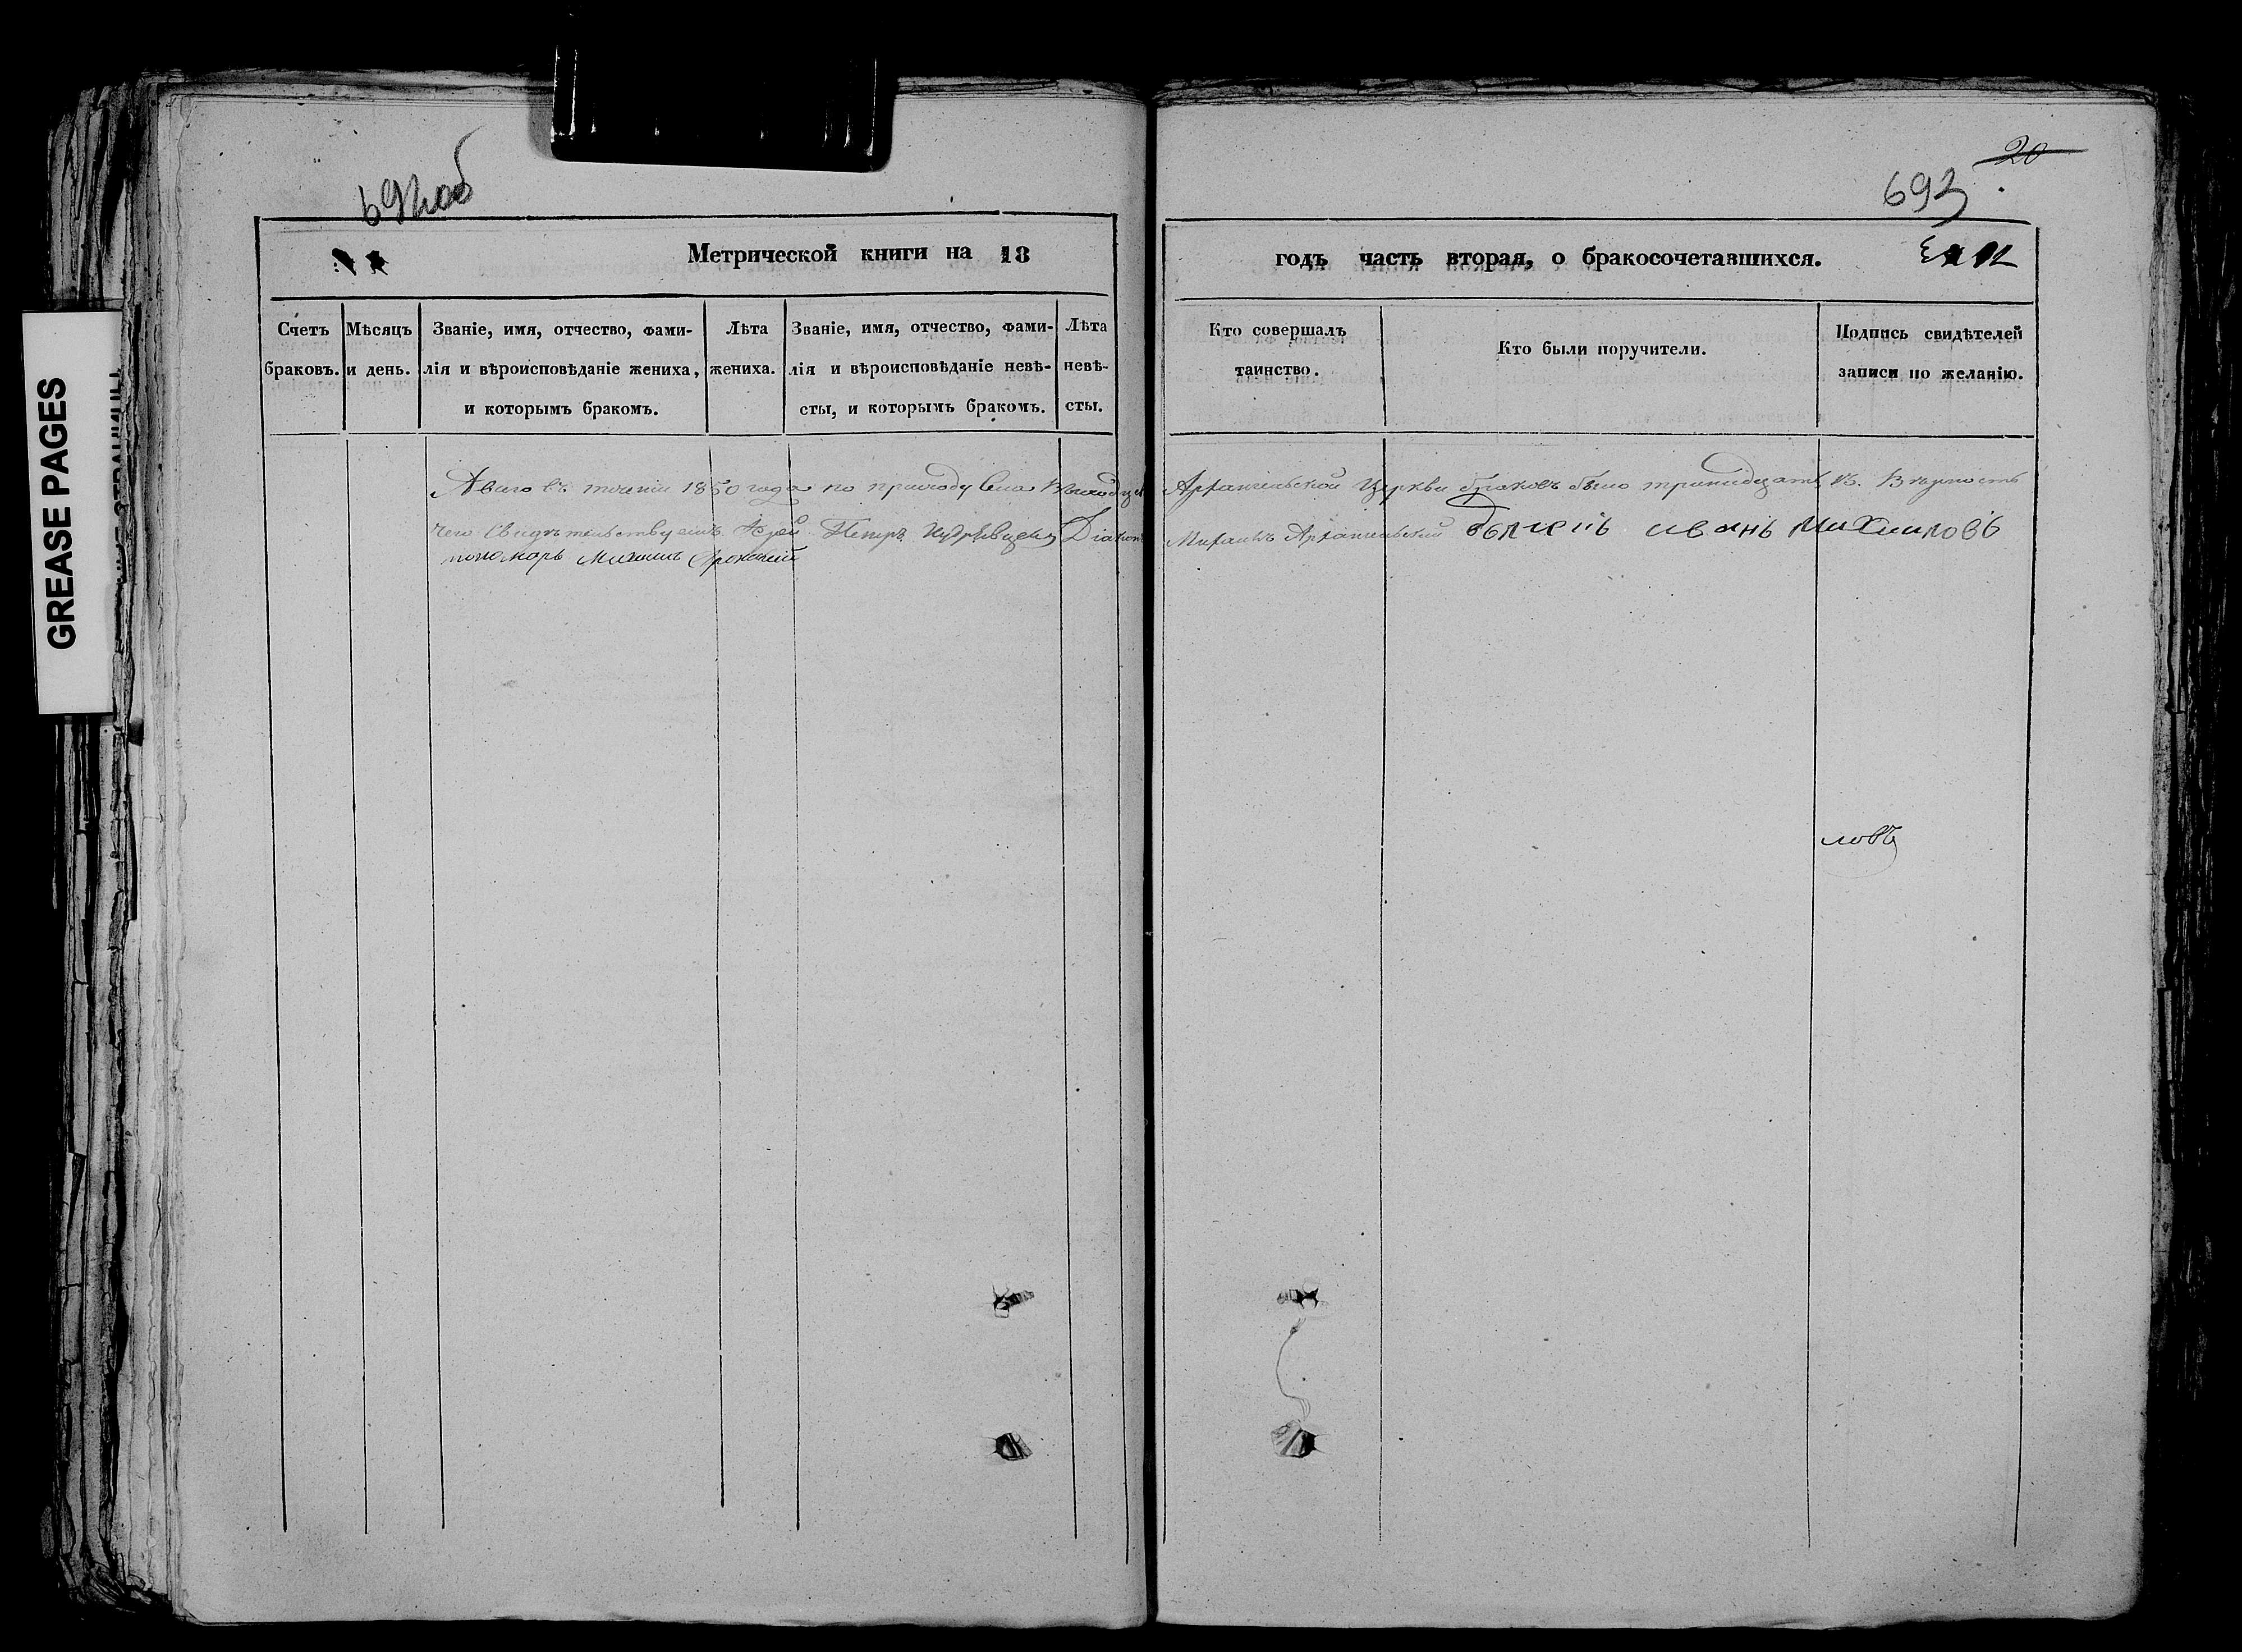 692 об
20
693
Метрической книги на 18
годъ часть вторая, о бракосочетавшихся.
Счетъ браковъ.
Мѣсяцъ и день.
Званіе, имя, отчество, фами-
лія и вѣроисповѣданіе жениха,
и которымъ бракомъ.
Лѣта жениха.
Званіе, имя, отчество, фами-
лія и вѣроисповѣданіе невѣ-
сты, и которымъ бракомъ.
Лѣта невѣ-
сты.
Кто совершалъ
таинство.
Кто были поручители.
Подпись свидѣтелей
записи по желанію.
А всего въ теченіи 1850 года по приходу села Архангельской Церкви браковъ было тринадцать 13. В вѣрности
чего свидѣтельствуемъ Іерей Петръ Діаконъ Михаилъ Архангельскій иванъ михаиловъ
пономарь Михаилъ
ловъ
GREASE PAGES